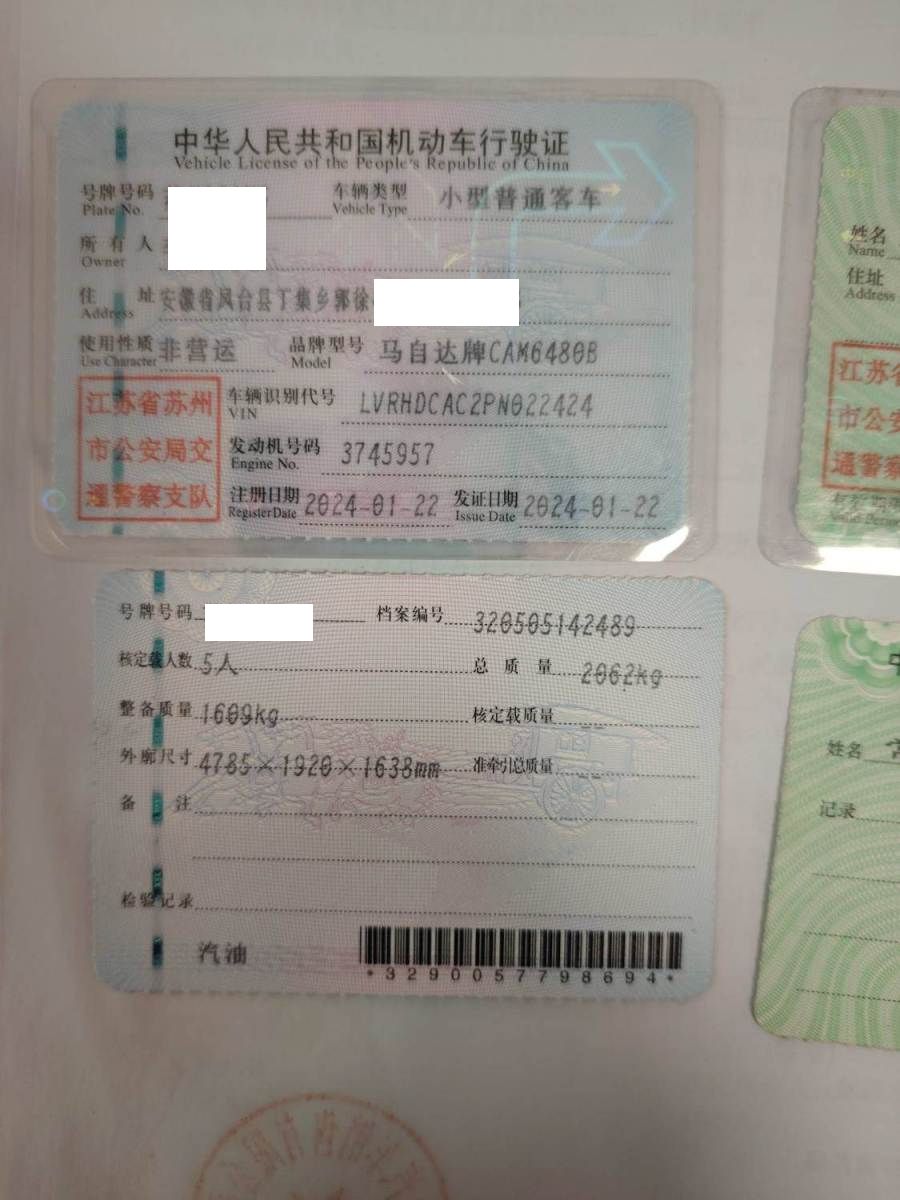 中华人民共和国机动车行驶证
Vehicle License of the People's Republic of China
号牌号码
Plate No.
车辆类型 小型普通客车
Vehicle Type
所有人
Owner
住址 安徽省凤台县丁集乡郭徐
Address
使用性质 非营运
Use Character
品牌型号 马自达牌CAM6480B
Model
江苏省苏州
市公安局交
通警察支队
车辆识别代号 LVRHDCAC2PN022424
VIN
发动机号码 3745957
Engine No.
注册日期 2024-01-22
Register Date
发证日期 2024-01-22
Issue Date
号牌号码
档案编号 320505142489
核定载人数 5人
总质量 2062kg
整备质量 1609kg
核定载质量 --
外廓尺寸 4785×1920×1638mm
准牵引总质量 --
备注
检验记录
汽油
*3290057798694*
姓名
Name
住址
Address
江苏省
市公安
通警察
姓名
记录